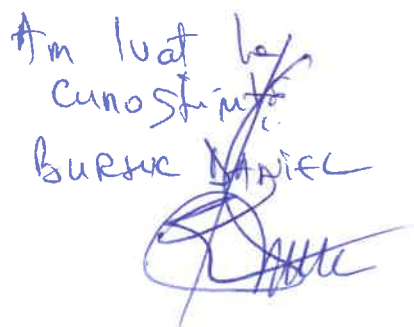 Am luat la
cunoștință
BURSUC DANIEL